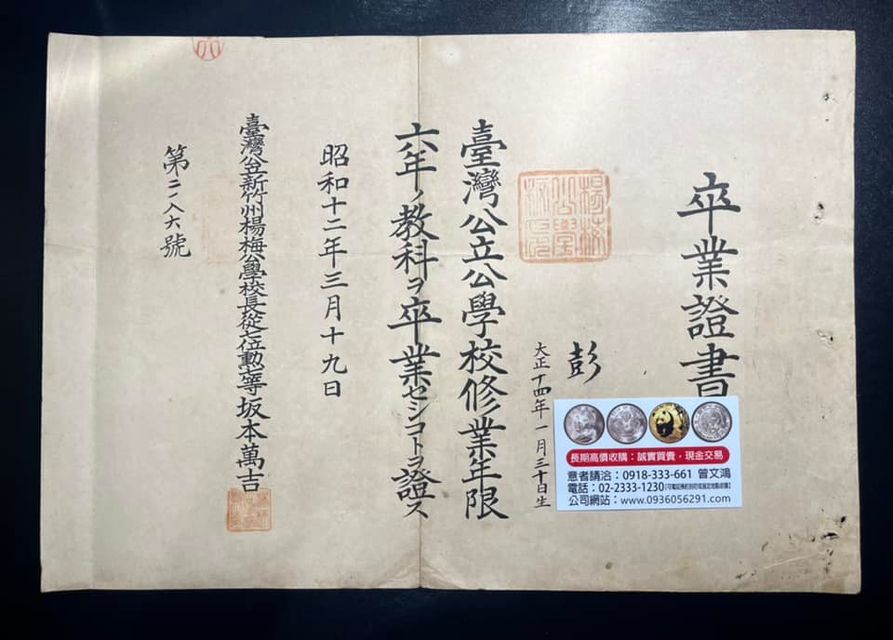 卒業證書
彭
大正十四年一月三十日生
臺灣公立公學校修業年限
六年ノ教科ヲ卒業セシコトヲ證ス
昭和十二年三月十九日
臺灣公立新竹州楊梅公學校長從七位勲七等坂本萬吉
第二八六號
長期高價收購：誠實買賣・現金交易
意者請洽：0918-333-661 曾文鴻
電話：02-2333-1230
公司網站：www.0936056291.com